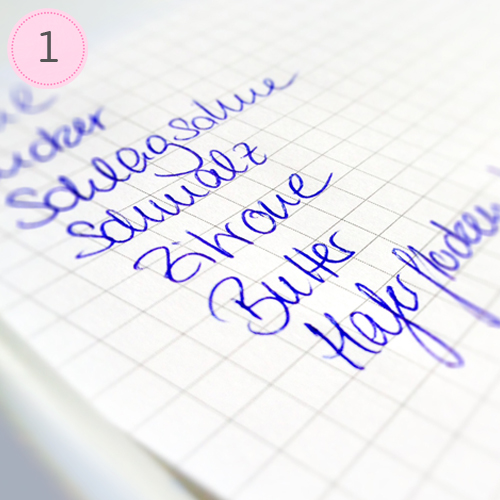 1
Schlagsahne
Schmalz
Zitrone
Butter
Haferflocken